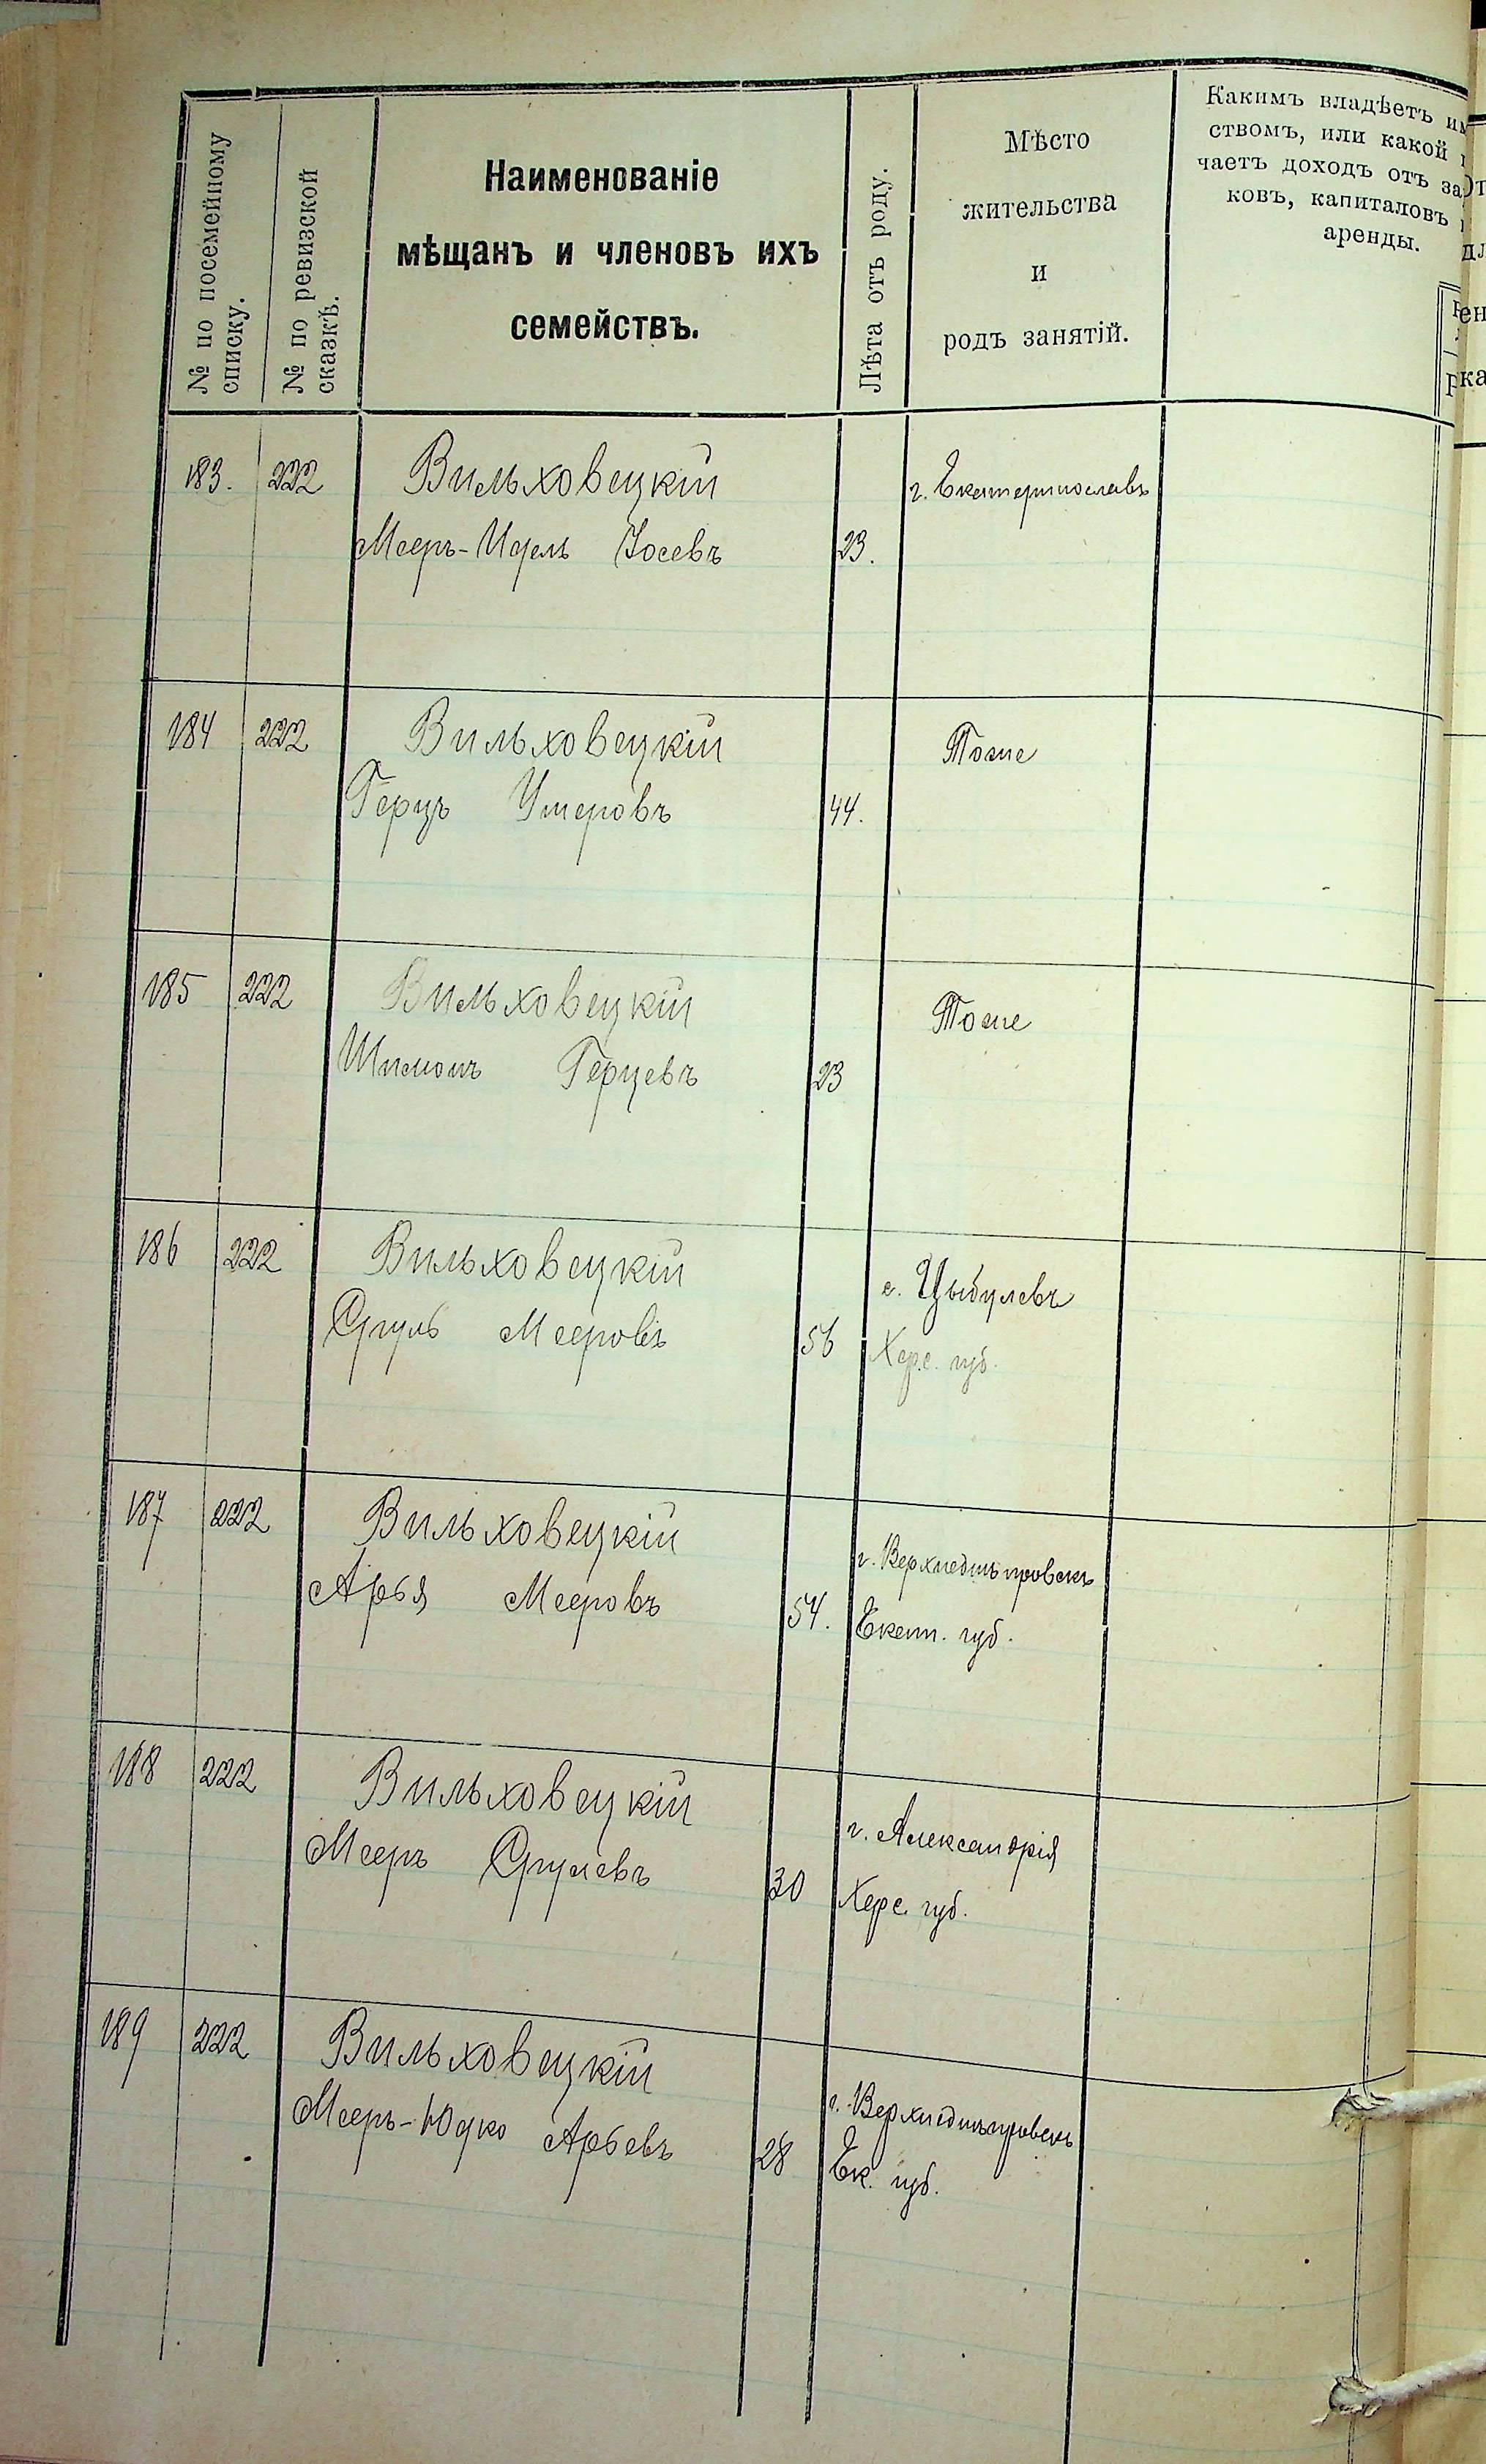 № по посемейному
списку.
№ по ревизской
сказкѣ.
Наименованіе
мѣщанъ и членовъ ихъ
семействъ.
Лѣта отъ роду.
Мѣсто
жительства
и
родъ занятій.
Какимъ владѣетъ
ствомъ, или какой
чаетъ доходъ отъ
ковъ, капиталовъ
аренды.
183. 222 Вильховецкій г. Екатеринославъ
Мееръ-Идель Іосевъ 23.
184 222 Вильховецкій Тоже
Герцъ Умеровъ 44.
185 222 Вильховецкій Тоже
Шимонъ Герцевъ 23
186 222 Вильховецкій с. Цыбулевъ
Сруль Мееровъ 56 Херс. губ.
187 222 Вильховецкій г. Верхнеднѣпровскъ
Арья Мееровъ 54. Екат. губ.
188 222 Вильховецкій г. Александрія
Мееръ Срулевъ 30 Херс. губ.
189 222 Вильховецкій г. Верхнеднѣпровскъ
Мееръ-Юдко Арьевъ 28 Ек. губ.